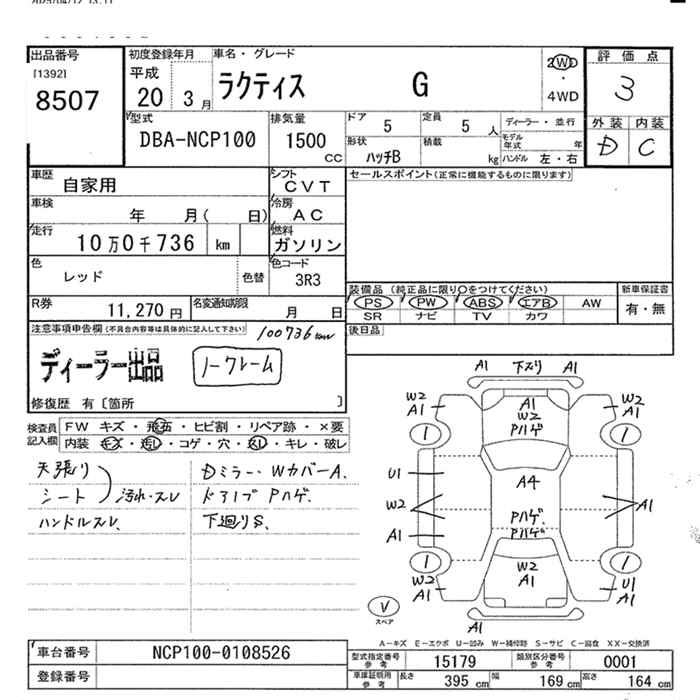 出品番号
[1392]
8507
初度登録年月
平成
20 3月
車名・グレード
ラクティス G
2WD
・
4WD
評価点
3
外装 内装
D C
型式
DBA-NCP100
排気量
1500
CC
ドア
5
定員
5 人
ディーラー・並行
形状
ハッチB
積載
kg
モデル年式 年
ハンドル 左・右
車歴
自家用
シフト
CVT
セールスポイント(正常に機能するものに限ります)
車検
年 月( 日)
冷房
AC
走行
10万0千736 km
燃料
ガソリン
色
レッド
色替
色コード
3R3
装備品 (純正品に限り〇をつけてください)
新車保証書
PS PW ABS エアB AW
有・無
SR ナビ TV カワ
R券
11,270円
名変通知期限
月 日
後日品
注意事項申告欄(不具合内容等は具体的に記入して下さい)
100736km
ディーラー出品
ノークレーム
修復歴 有〔箇所 〕
検査員
記入欄
FW キズ・飛石・ヒビ割・リペア跡・×要
内装 キズ・汚れ・コゲ・穴・スレ・キレ・破レ
天張り
シート
汚れ・スレ
ハンドルスレ
Dミラー・WカバーA.
ドアノブ Pハゲ.
下廻りS.
A1 下スリ A1
W2
A1
A1
W2
Pハゲ
W2
A1
U1
W2
A1
A4
Pハゲ.
Pハゲ
A1
W2
A1
W2
A1
U1
A1
A1
スペア
A-キズ E-エクボ U-凹み W-補修跡 S-サビ C-腐食 XX-交換済
車台番号
NCP100-0108526
登録番号
型式指定番号
参考
15179
類別区分番号
参考
0001
車庫証明用
参考
長さ
395 cm
幅
169 cm
高さ
164 cm